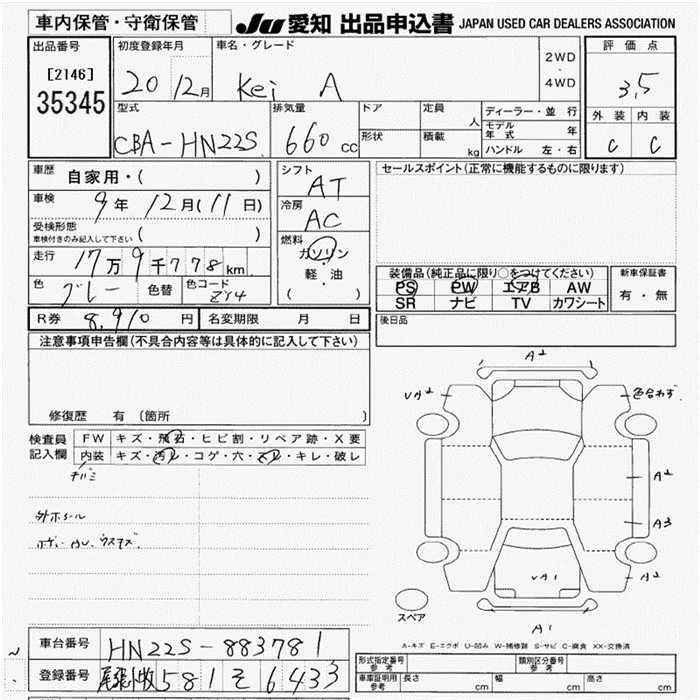 車内保管・守衛保管
JU 愛知 出品申込書 JAPAN USED CAR DEALERS ASSOCIATION
出品番号 初度登録年月 車名・グレード 2WD・4WD 評価点
[2146] 20 12月 Kei A 3.5
35345
型式 排気量 ドア 定員 人 ディーラー・並行 外装 内装
形状 積載 kg モデル年式 年
CBA-HN22S 660cc ハンドル 左・右 C C
車歴 自家用・( ) シフト AT セールスポイント(正常に機能するものに限ります)
車検 9年12月(11日) 冷房 AC
受検形態 ( )
車検付きのみ記入して下さい
燃料 ガソリン
走行 17万9千778km 軽・油 装備品(純正品に限り○をつけてください) 新車保証書
色 グレー 色替 色コード ZY4 ( ) PS PW エアB AW 有・無
SR ナビ TV カワシート
R券 8,910円 名変期限 月 日 後日品
注意事項申告欄(不具合内容等は具体的に記入して下さい)
修復歴 有(箇所 )
検査員 FW キズ・飛石・ヒビ割・リペア跡・X要
記入欄 内装 キズ・汚レ・コゲ・穴・スレ・キレ・破レ
外ホイール
A2
UA2 色合わず
A2
A3
A2
UA1
スペア
A1
A-キズ E-エクボ U-凹み W-補修跡 S-サビ C-腐食 XX-交換済
車台番号 HN22S-883781
登録番号 尾張小牧 581 そ 6433
形式指定番号 参考 類別区分番号 参考
車庫証明用 参考 長さ cm 幅 cm 高さ cm